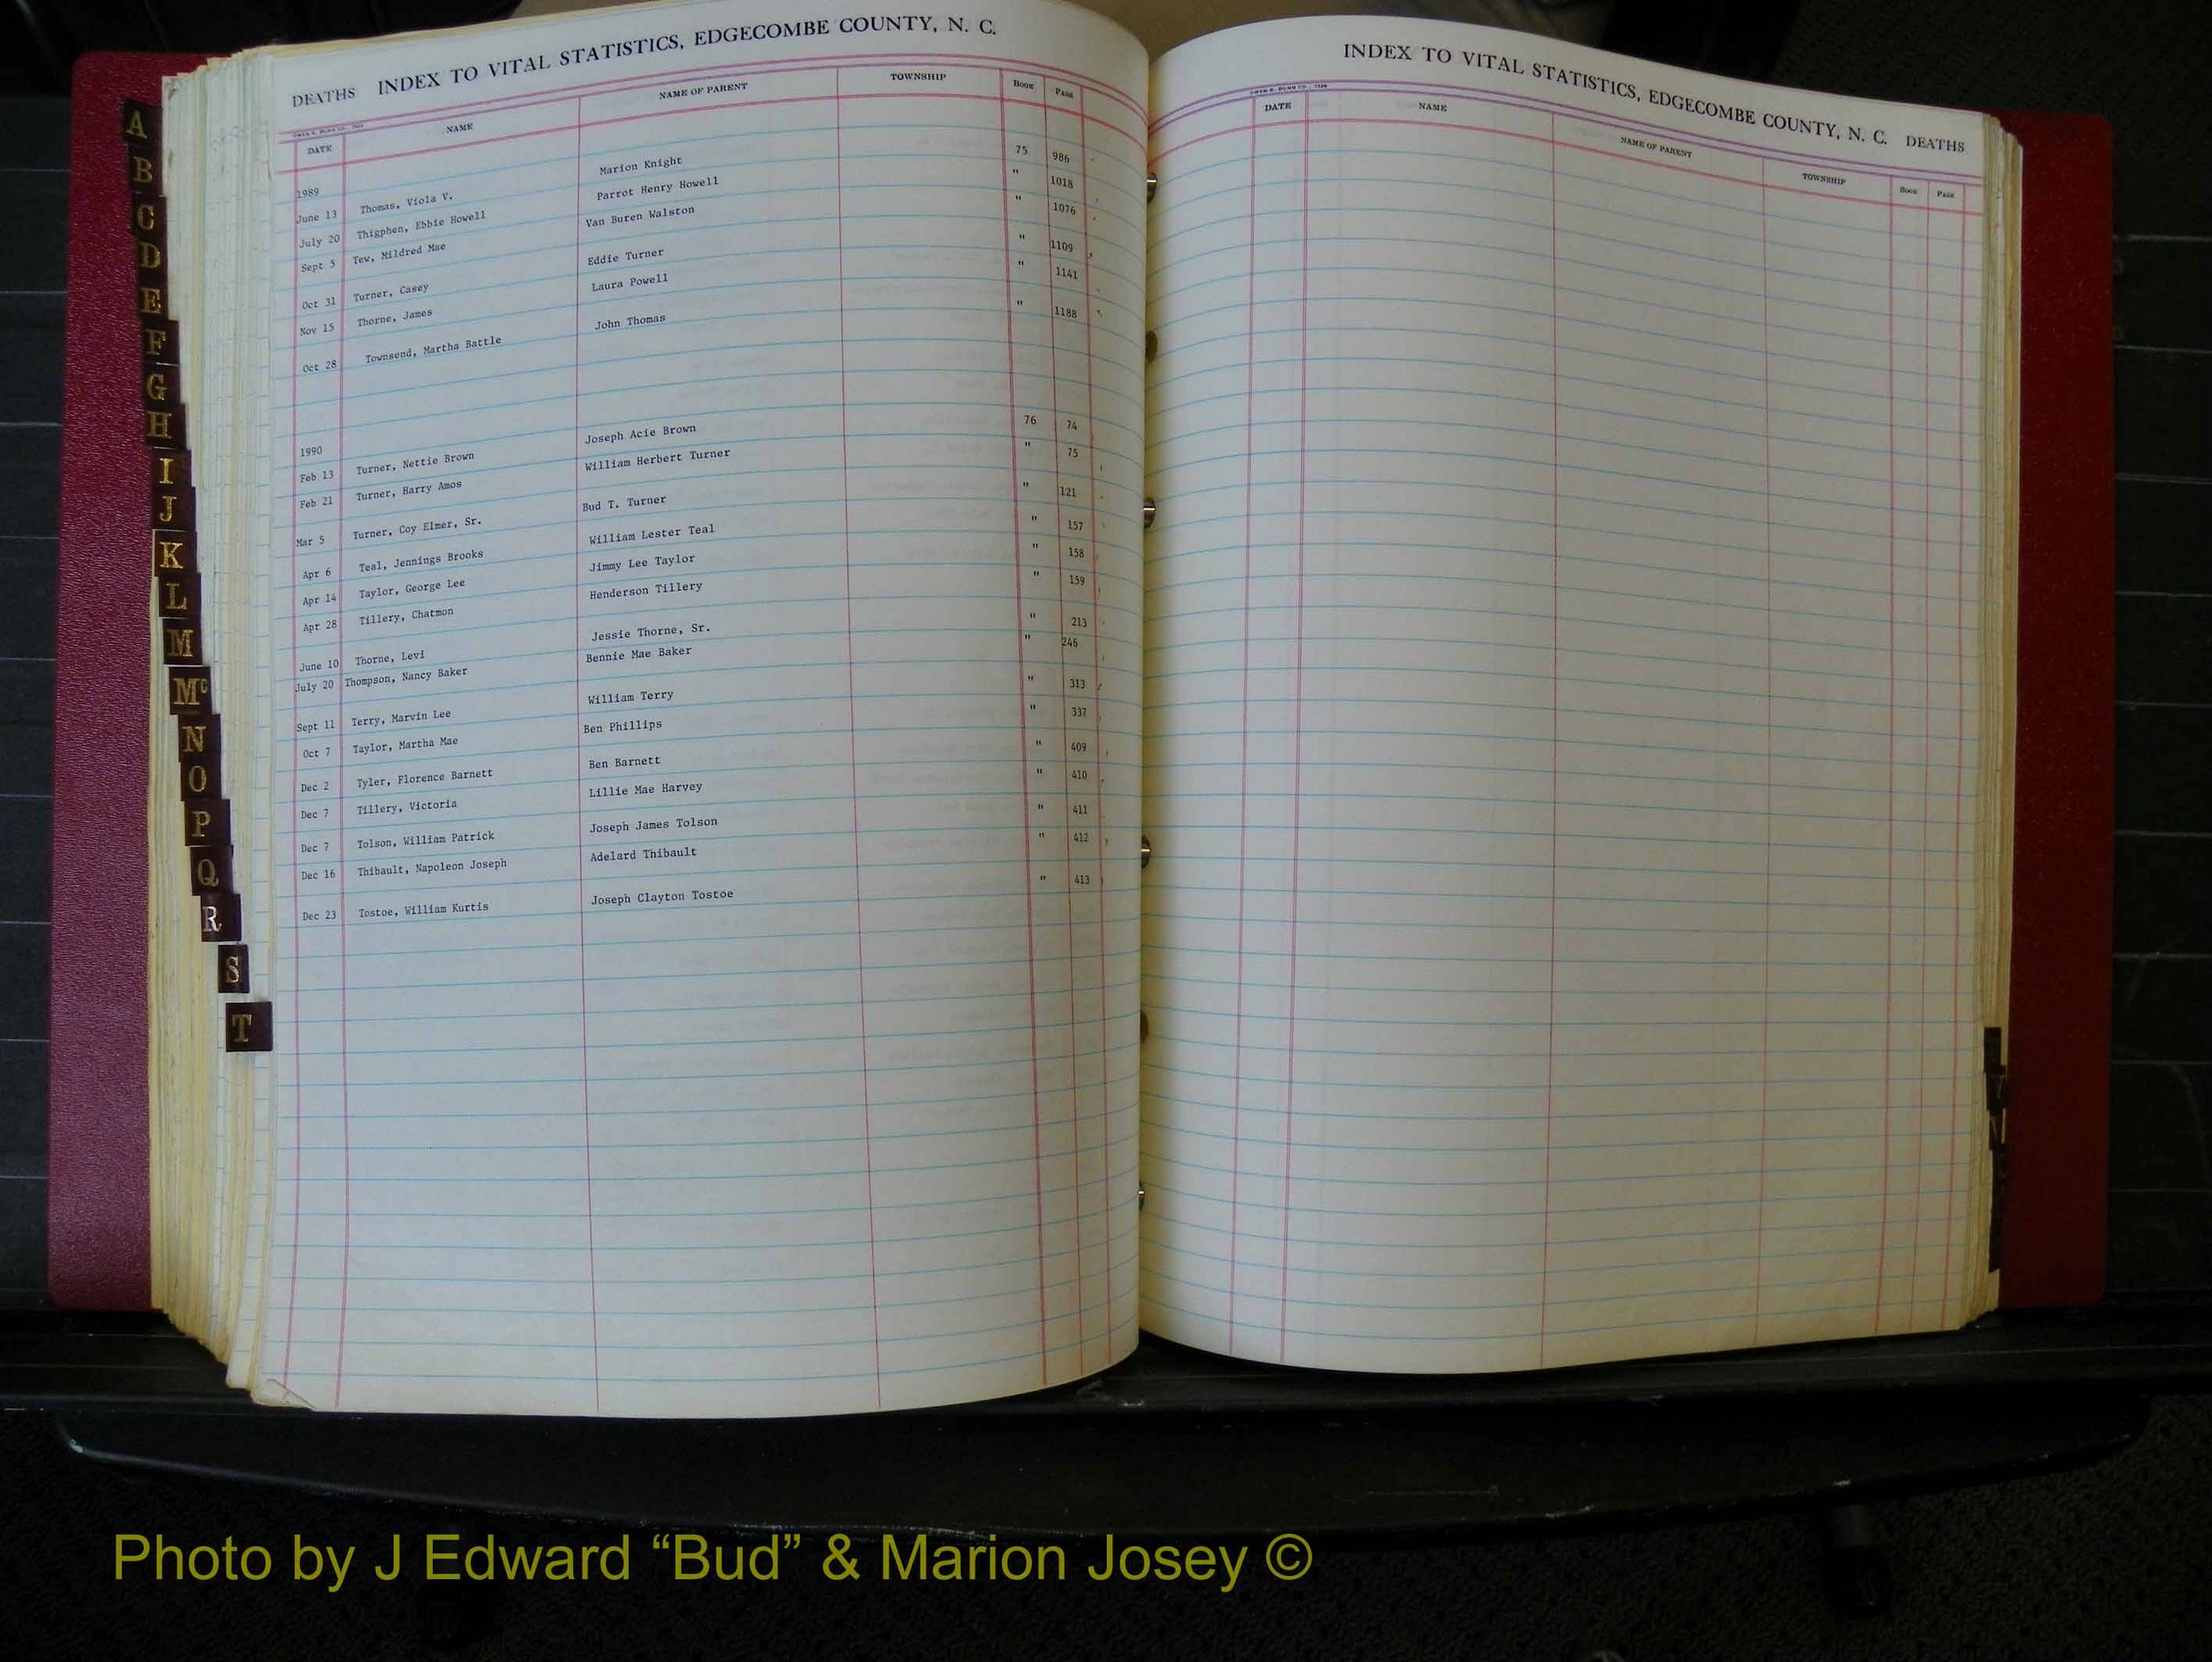 DEATHS INDEX TO VITAL STATISTICS, EDGECOMBE COUNTY, N. C.
OWEN G. DUNN CO.
DATE NAME NAME OF PARENT TOWNSHIP BOOK PAGE
1989
June 13 Thomas, Viola V. Marion Knight 75 986
July 20 Thigphen, Ebbie Howell Parrot Henry Howell " 1018
Sept 5 Tew, Mildred Mae Van Buren Walston " 1076
Oct 31 Turner, Casey Eddie Turner " 1109
Nov 15 Thorne, James Laura Powell " 1141
Oct 28 Townsend, Martha Battle John Thomas " 1188
1990
Feb 13 Turner, Nettie Brown Joseph Acie Brown 76 74
Feb 21 Turner, Harry Amos William Herbert Turner " 75
Mar 5 Turner, Coy Elmer, Sr. Bud T. Turner " 121
Apr 6 Teal, Jennings Brooks William Lester Teal " 157
Apr 14 Taylor, George Lee Jimmy Lee Taylor " 158
Apr 28 Tillery, Chatmon Henderson Tillery " 159
June 10 Thorne, Levi Jessie Thorne, Sr. " 213
July 20 Thompson, Nancy Baker Bennie Mae Baker " 246
Sept 11 Terry, Marvin Lee William Terry " 313
Oct 7 Taylor, Martha Mae Ben Phillips " 337
Dec 2 Tyler, Florence Barnett Ben Barnett " 409
Dec 7 Tillery, Victoria Lillie Mae Harvey " 410
Dec 7 Tolson, William Patrick Joseph James Tolson " 411
Dec 16 Thibault, Napoleon Joseph Adelard Thibault " 412
Dec 23 Tostoe, William Kurtis Joseph Clayton Tostoe " 413
A
B
C
D
E
F
G
H
I
J
K
L
M
Mc
N
O
P
Q
R
S
T
INDEX TO VITAL STATISTICS, EDGECOMBE COUNTY, N. C. DEATHS
OWEN G. DUNN CO.
DATE NAME NAME OF PARENT TOWNSHIP BOOK PAGE
Photo by J Edward “Bud” & Marion Josey ©